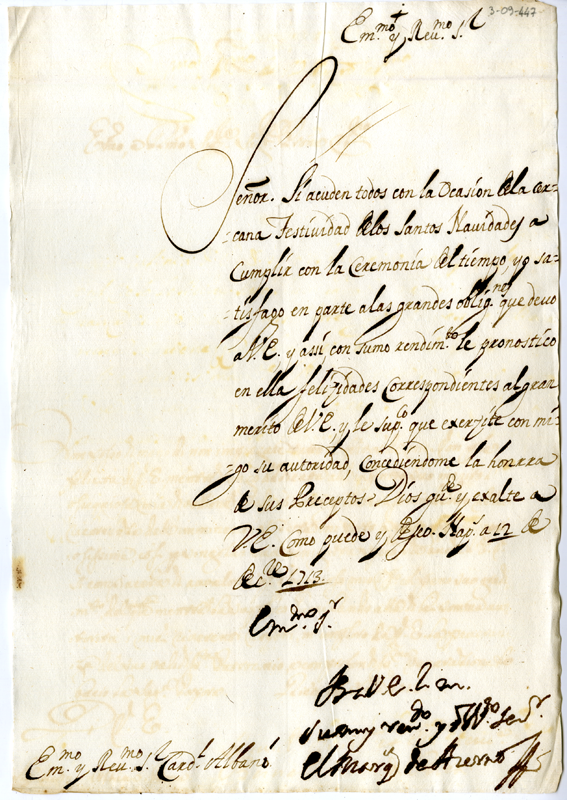 3-09-447
Em.mo y Reu.mo S.r
Señor. Si acuden todos con la Ocasion de la cer-
-cana Festiuidad de los Santos Navidades a
Cumplir con la Ceremonia del tiempo, yo sa-
-tisfago en parte a las grandes oblig.nes que deuo
a V.E. y assi, con sumo rendim.to le pronostico
en ella felizidades Correspondientes al gran
merito de V.E. y le sup.co que exerzite con mi-
-go su autoridad, Concediendome la honrra
de sus Preceptos. Dios gu.e y exalte a
V.E. Como puede y deseo. Nap.s a 12 de
Dec.re 1713.
Em.mo S.r
B.L.M. de V.E.
su muy ren.do y
el Marq.s de
Em.mo y Reu.mo S.r Card.l Albano.